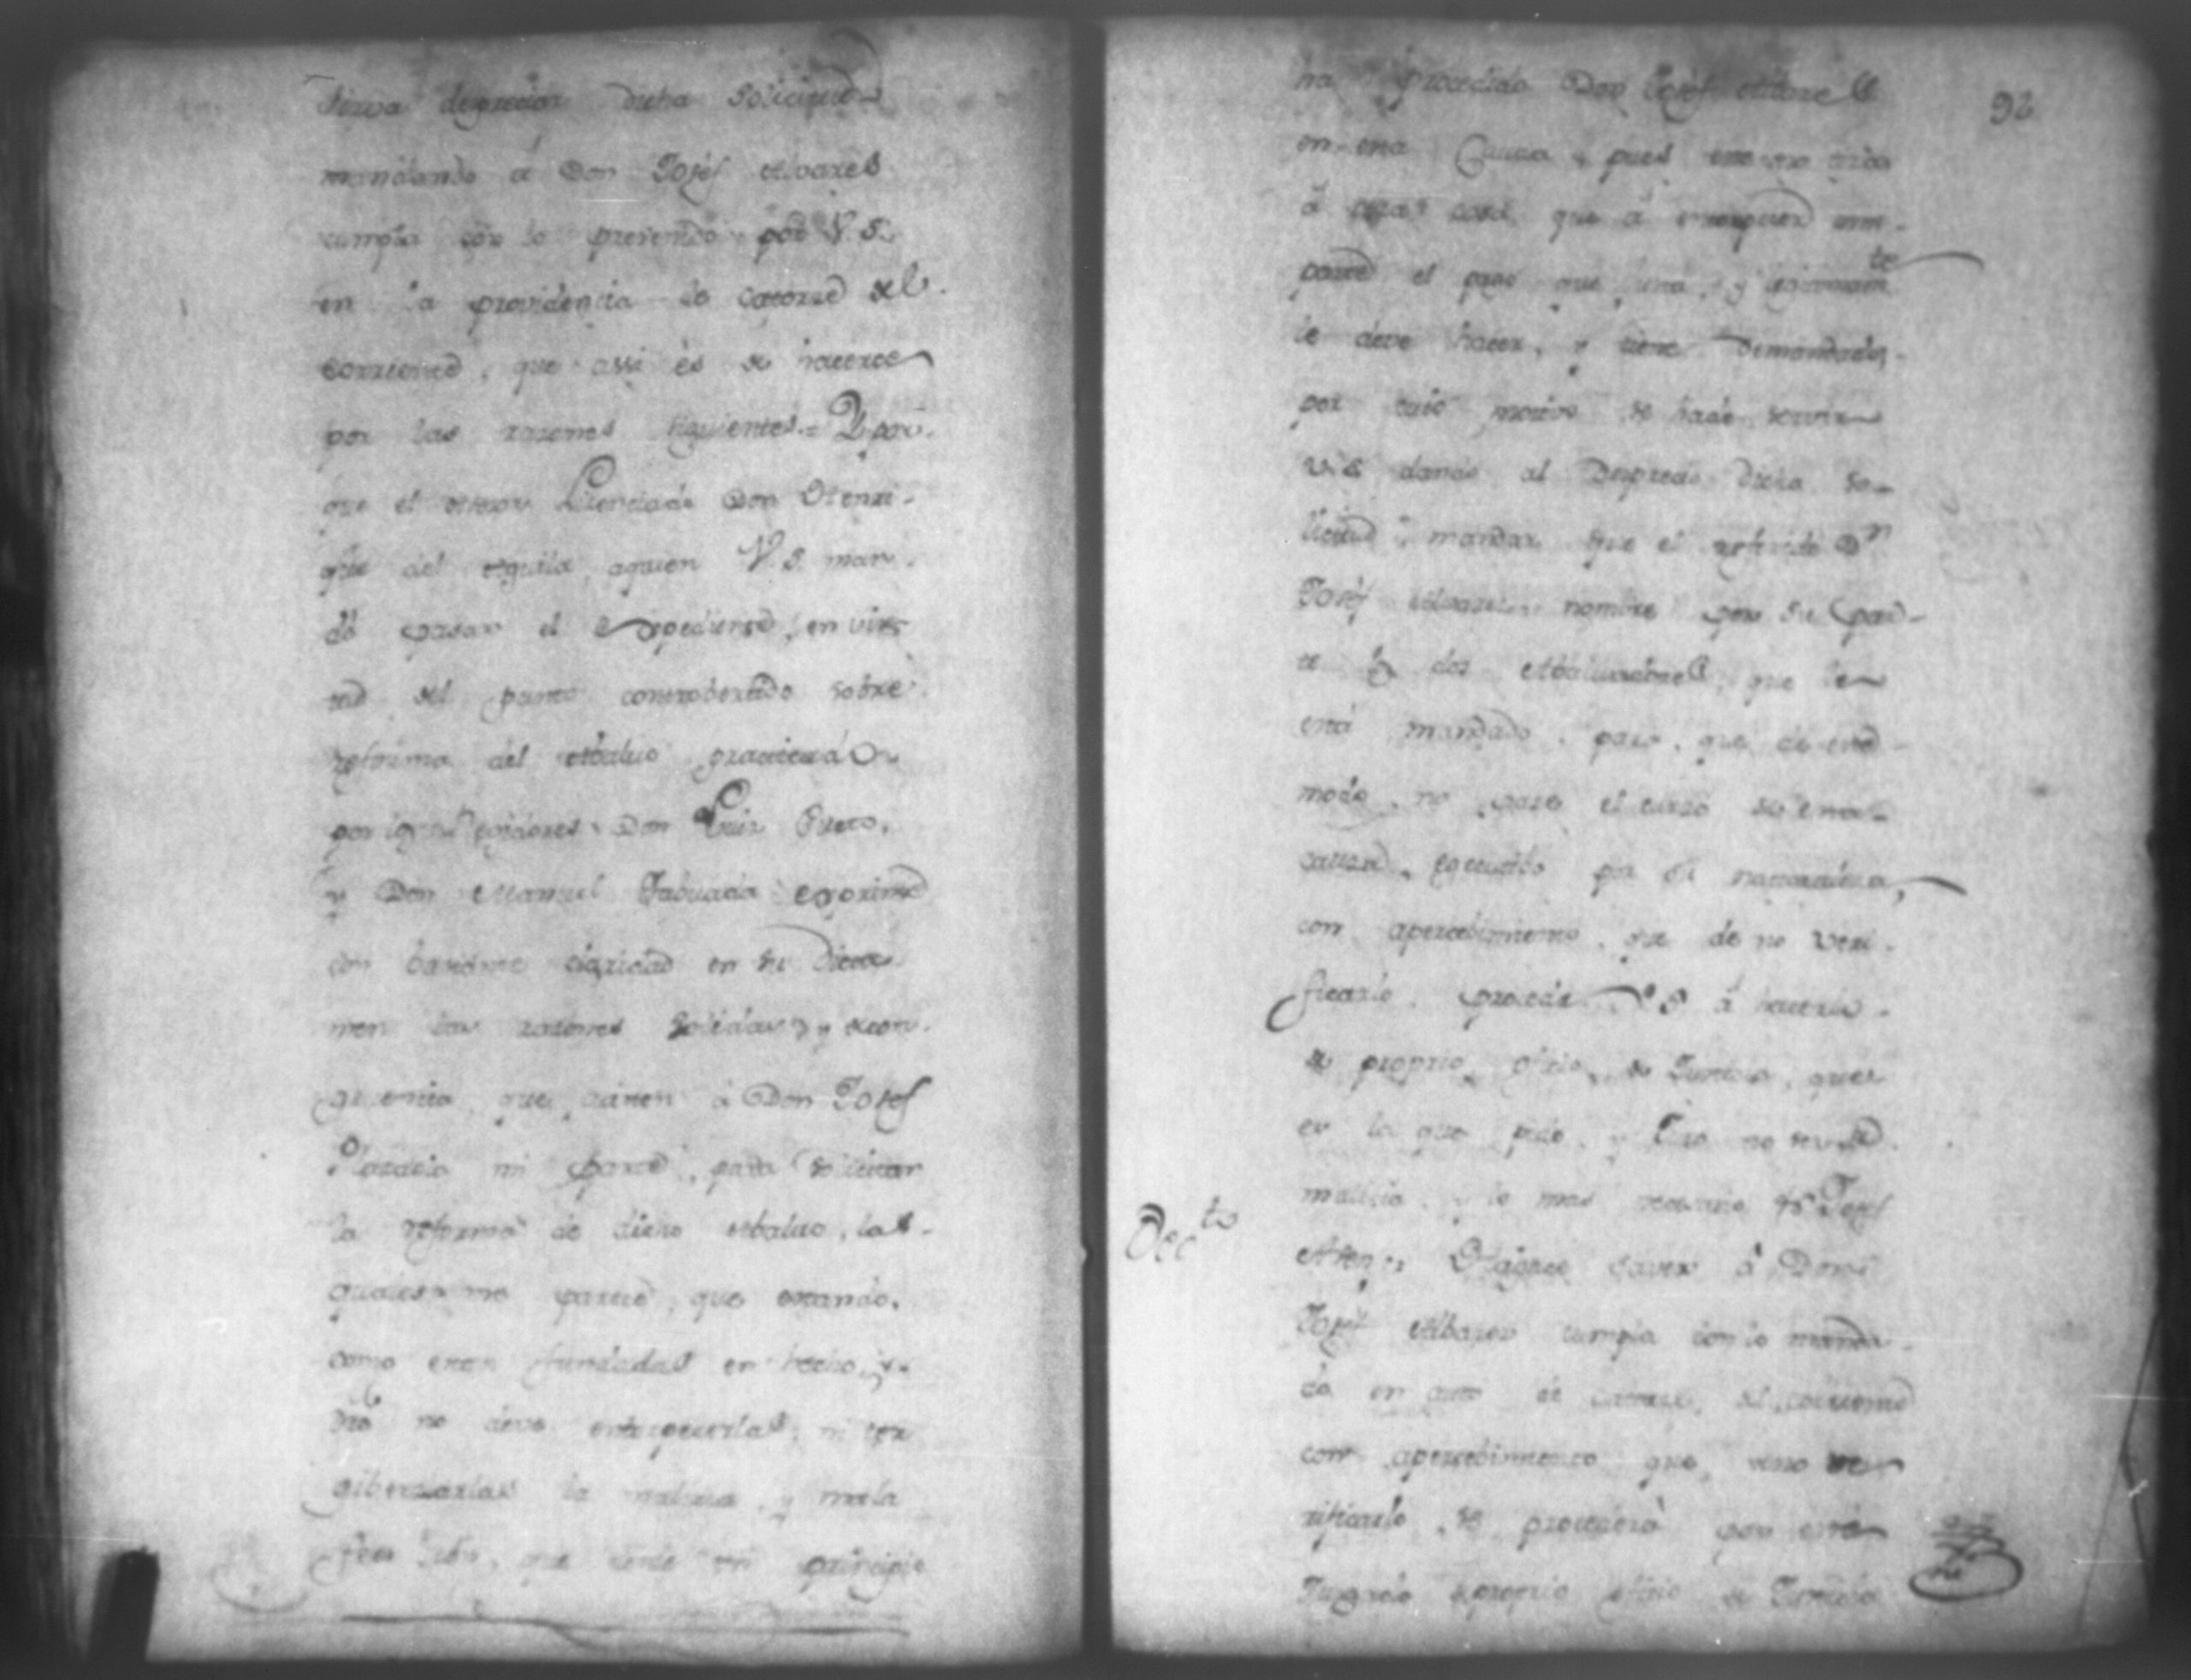 sirva depreciar dicha solicitud
mandando á Don Josef Alvares
cumpla con lo prevenido por V. S.
en la providencia de catorce del
corriente, que assi és de hacerce
por las razones siguientes = Y por
que el Licenciado Don Henri-
que del Aguila, aquien V. S. man-
dó pasar el Expediente, en vir-
tud del punto controbertido sobre
reforma del Abaluo practicado
por los Don Luis Prieto,
y Don Manuel Taboada exprime
con bastante claridad en su Dicta-
men las razones solidas, y
que tienen á Don Josef
Palacio mi parte, para solicitar
la reforma de dicho Abaluo, las-
quales me parece, que estando,
como estan fundadas en hecho, y
dro no deve entorpecerlas, ni ter
giberzarlas la malicia, y mala
fee con, que desde un principio
92
ha procedido Don Josef Alvares
en esta Causa, pues este no mira
á otra cosa, que á
el pago que justa, y te
le deve hacer, y tiene Demandado,
por cuio motivo se hade servir
V. S. dando al Desprecio dicha so-
licitud, mandar que el referido Dn
Josef Alvares nombre por su par-
te los dos Abaluadores, que le
está mandado, para, que de este
modo, no pare el curso de esta
causa, por su naturaleza,
con apercebimiento, que de no veri-
ficarlo, procede V. S. á hacerlo
de proprio oficio de Justicia, que
es la que pido, y Juro no ser de
malicia, y lo mas necesario &a Josef
Dec.to
Hagace saver á Don
Josef Albares cumpla con lo manda-
do en auto de catorce del corriente
con apercebimiento que, deno ve-
rificarlo, se procederá por este
Jusgado de proprio oficio de Justicia